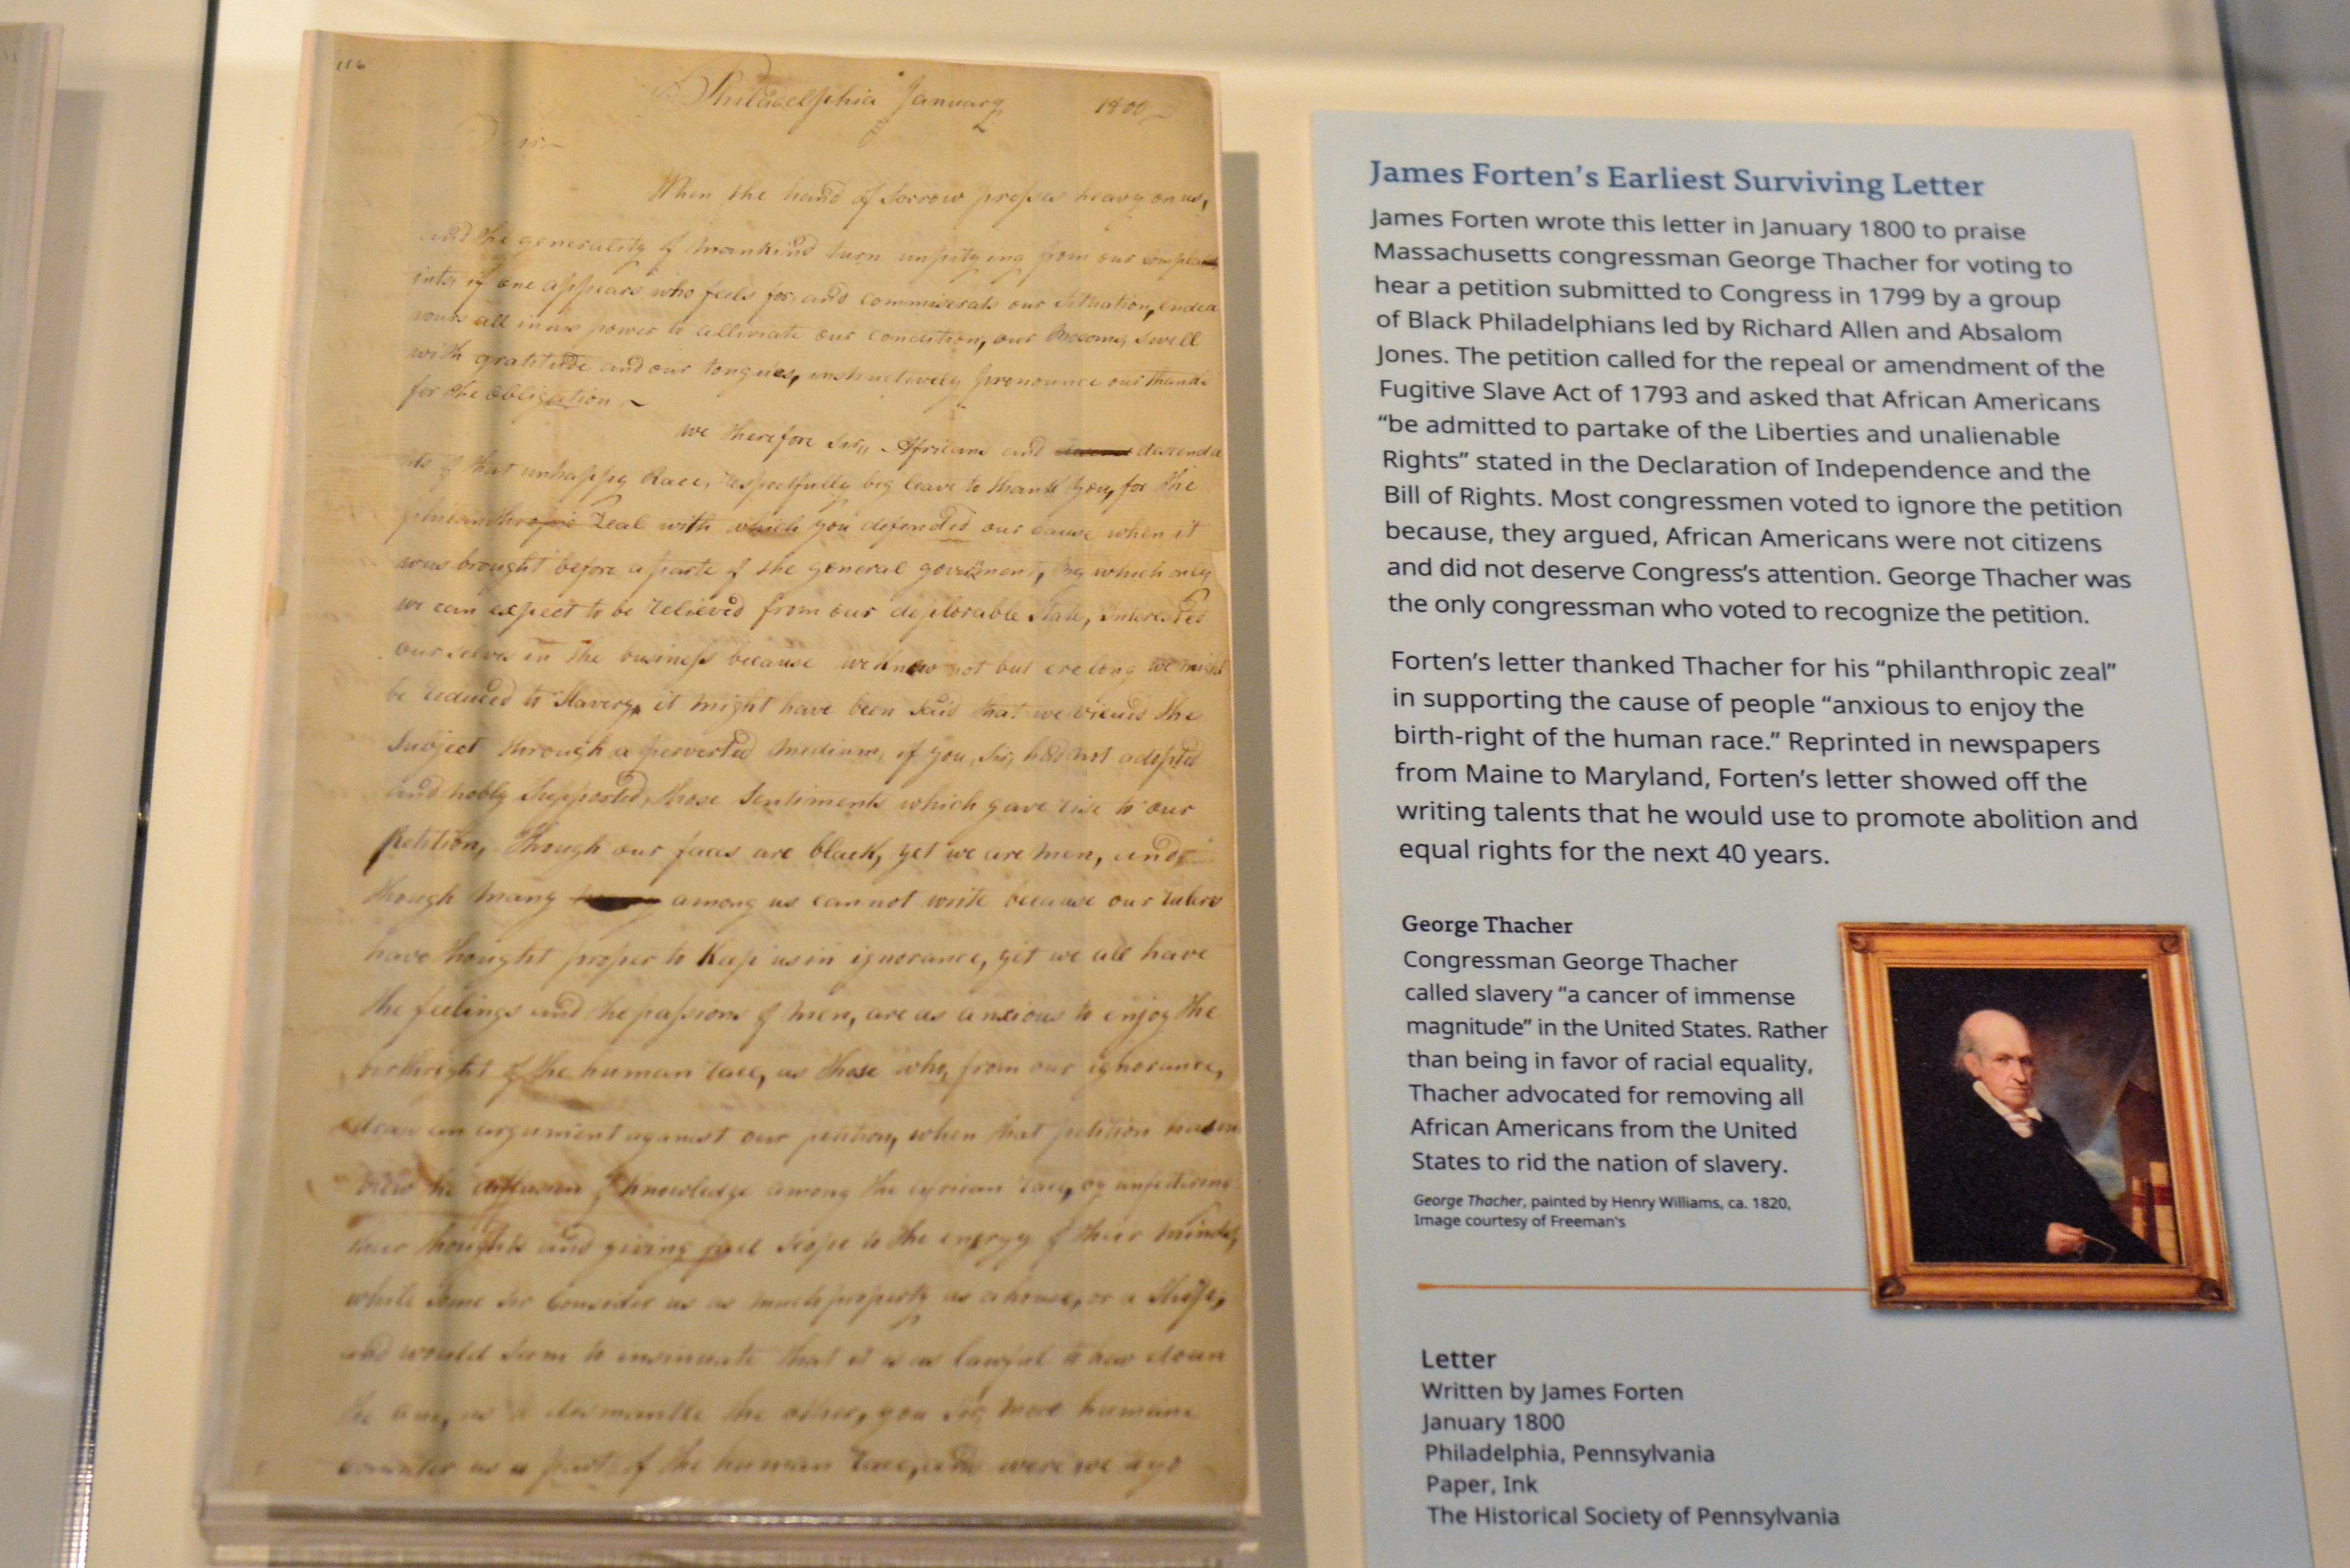 116
Philadelphia January 1800
Sir
When the hand of Sorrow presses heavy on us,
and the generality of mankind turn unpitying from our compla
ints, if one appears who feels for, and commiserates our situation, endea
vours all in his power to alleviate our condition, our bosoms swell
with gratitude and our tongues, instinctively pronounce our thanks
for the obligation
we therefore Sir, Africans and descenda
nts of that unhappy Race, respectfully beg leave to thank you, for the
philanthropic Zeal with which you defended our cause when it
was brought before a parte of the general government, by which only
we can expect to be relieved from our deplorable state, interested
ourselves in the business because we know not but ere long we might
be reduced to Slavery, it might have been said that we viewed the
Subject through a perverted medium, if you, Sir, had not adopted
and nobly Supported, those Sentiments which gave rise to our
Petition, Though our faces are black, yet we are men, and
though many among us cannot write because our rulers
have thought proper to keep us in ignorance, yet we all have
the feelings and the passions of men, are as anxious to enjoy the
birthright of the human race, as those who, from our ignorance,
draw an argument against our petition, when that petition has in
view the diffusion of knowledge among the african race, by unfettering
their thoughts and giving full scope to the energy of their minds,
while some Sir Consider us as much property as a house, or a Ship,
and would seem to insinuate that it is as lawful to hew down
the one, as to dismantle the other, you Sir, more humane
consider us a part of the human race, and were we to go
James Forten's Earliest Surviving Letter
James Forten wrote this letter in January 1800 to praise
Massachusetts congressman George Thacher for voting to
hear a petition submitted to Congress in 1799 by a group
of Black Philadelphians led by Richard Allen and Absalom
Jones. The petition called for the repeal or amendment of the
Fugitive Slave Act of 1793 and asked that African Americans
“be admitted to partake of the Liberties and unalienable
Rights” stated in the Declaration of Independence and the
Bill of Rights. Most congressmen voted to ignore the petition
because, they argued, African Americans were not citizens
and did not deserve Congress's attention. George Thacher was
the only congressman who voted to recognize the petition.
Forten's letter thanked Thacher for his “philanthropic zeal”
in supporting the cause of people “anxious to enjoy the
birth-right of the human race.” Reprinted in newspapers
from Maine to Maryland, Forten's letter showed off the
writing talents that he would use to promote abolition and
equal rights for the next 40 years.
George Thacher
Congressman George Thacher
called slavery “a cancer of immense
magnitude” in the United States. Rather
than being in favor of racial equality,
Thacher advocated for removing all
African Americans from the United
States to rid the nation of slavery.
George Thacher, painted by Henry Williams, ca. 1820,
Image courtesy of Freeman's
Letter
Written by James Forten
January 1800
Philadelphia, Pennsylvania
Paper, Ink
The Historical Society of Pennsylvania